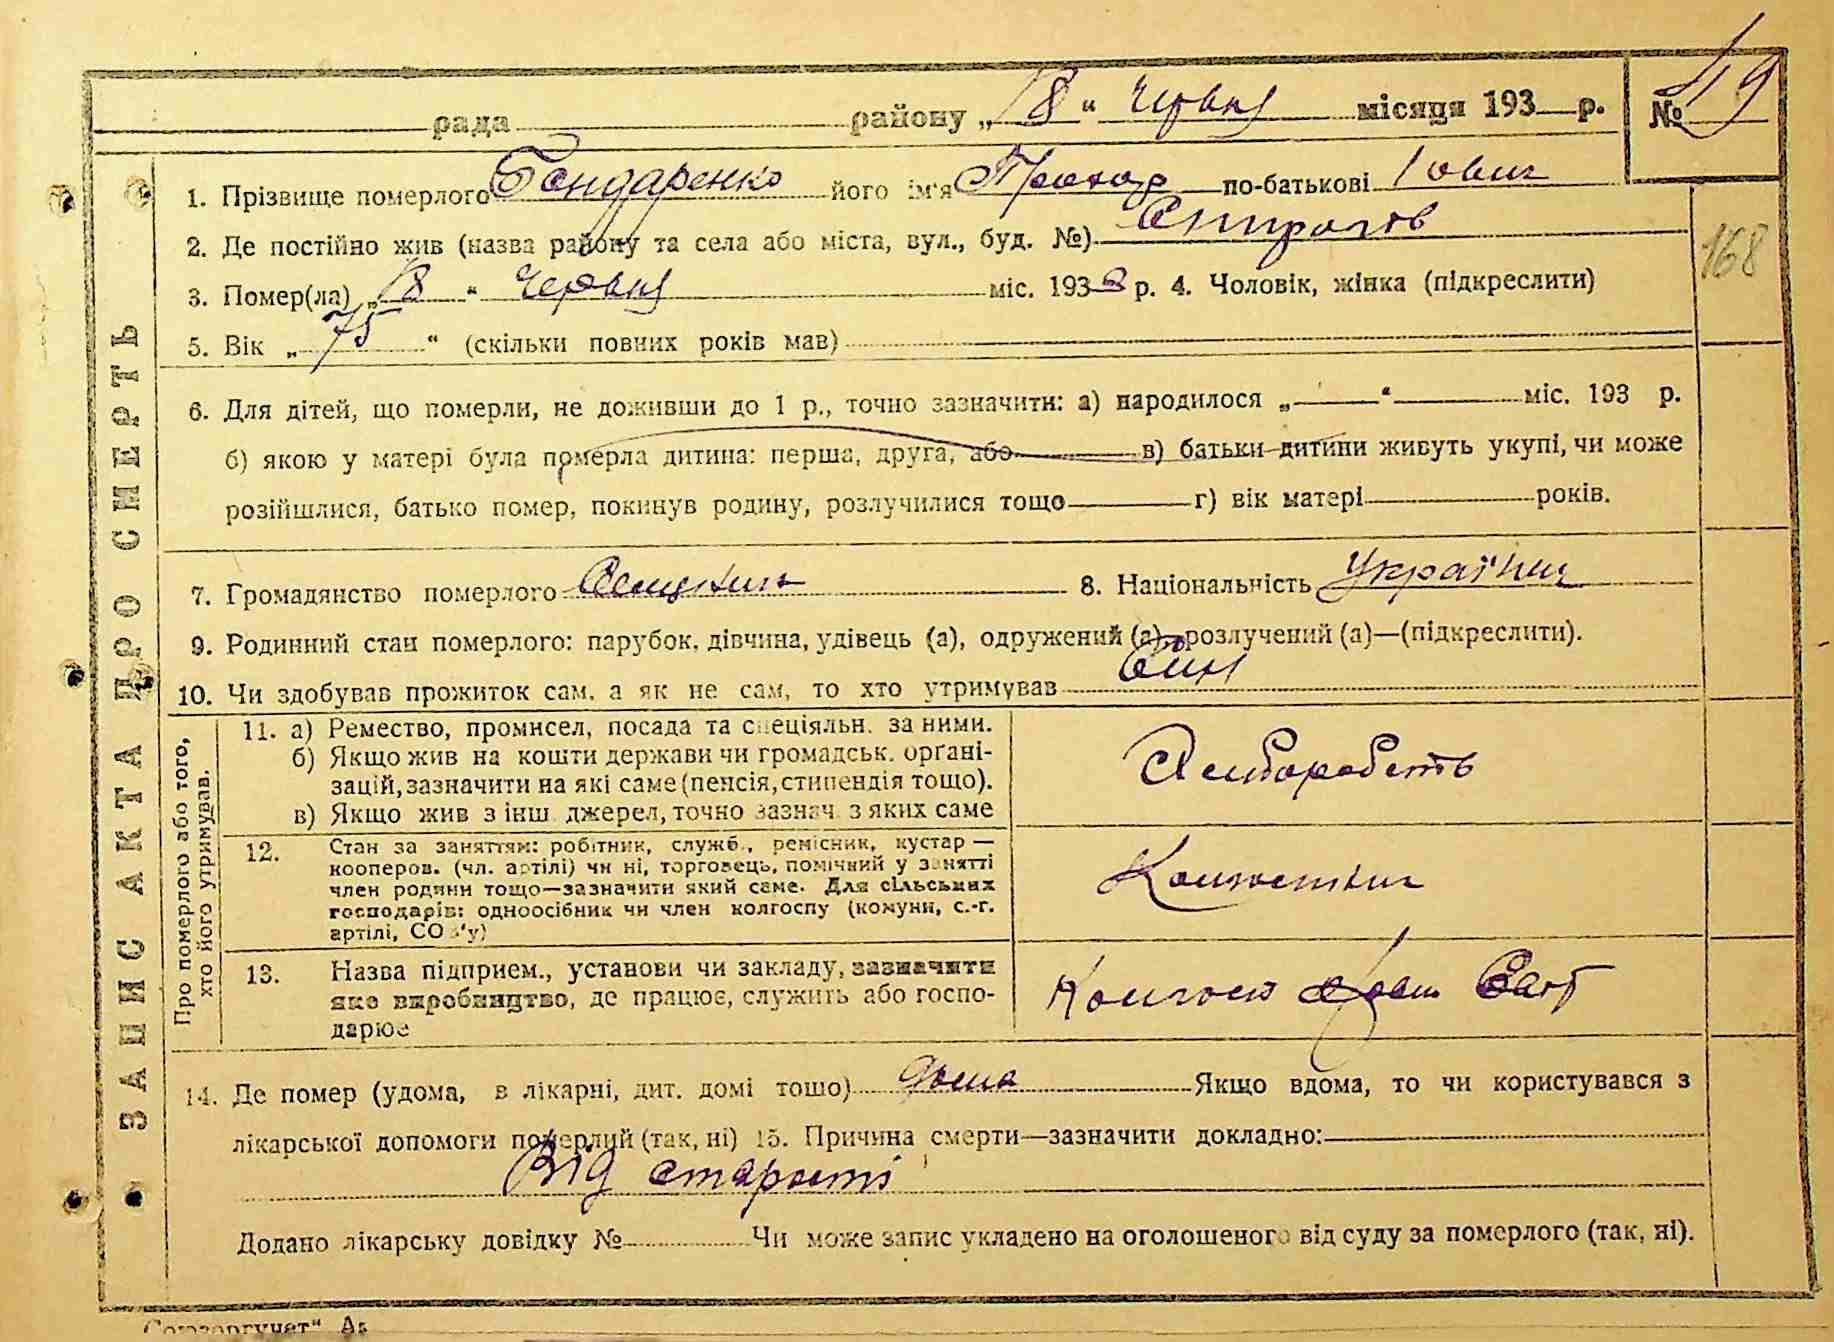 рада району „18“ Червня місяця 193 р. № 49
1. Прізвище померлого Бондаренко його ім'я Прохор по-батькові Іович
2. Де постійно жив (назва району та села або міста, вул., буд. №)
168
3. Помер(ла) „18“ Червня міс. 193 р. 4. Чоловік, жінка (підкреслити)
5. Вік „75“ (скільки повних років мав)
6. Для дітей, що померли, не доживши до 1 р., точно зазначити: а) народилося „ “ міс. 193 р.
б) якою у матері була померла дитина: перша, друга, або в) батьки дитини живуть укупі, чи може
розійшлися, батько помер, покинув родину, розлучилися тощо г) вік матері років.
7. Громадянство померлого 8. Національність Україниц
9. Родинний стан померлого: парубок, дівчина, удівець (а), одружений (а), розлучений (а)—(підкреслити).
10. Чи здобував прожиток сам, а як не сам, то хто утримував Син
11. а) Ремество, промисел, посада та спеціяльн. за ними.
б) Якщо жив на кошти держави чи громадськ. орґані-
зацій, зазначити на які саме (пенсія, стипендія тощо).
в) Якщо жив з інш джерел, точно зазнач. з яких саме
12. Стан за заняттям: робітник, служб., ремісник, кустар —
кооперов. (чл. артілі) чи ні, торговець, помічний у занятті
член родини тощо—зазначити який саме. Для сільських
господарів: одноосібник чи член колгоспу (комуни, с.-г.
артілі, СОЗ'у)
13. Назва підприєм., установи чи закладу, зазначити
яке виробництво, де працює, служить або госпо-
дарює
14. Де помер (удома, в лікарні, дит. домі тошо) Дома Якщо вдома, то чи користувався з
лікарської допомоги померлий (так, ні) 15. Причина смерти—зазначити докладно:
Від старости
Додано лікарську довідку № Чи може запис укладено на оголошеного від суду за померлого (так, ні).
ЗАПИС АКТА ПРО СМЕРТЬ
Про померлого або того,
хто його утримував.
Союзоргучет"